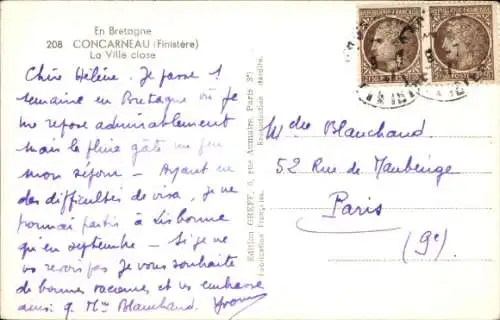 En Bretagne
208 CONCARNEAU (Finistère)
La Ville close
Chère Hélène. Je passe 1
semaine en Bretagne où je
me repose admirablement
mais la pluie gâte un peu
mon séjour - Ayant eu
des difficultés de visa, je ne
pourrai partir à Lisbonne
qu'en septembre - Si je ne
vs revois pas je vous souhaite
de bonnes vacances et vs embrasse
ainsi q. Mme Blanchard. Yvonne
Edition GREFF, 8, rue Aumaire Paris 3e
Fabrication Française. Reproduction interdite.
Mme Blanchard
52 Rue de Maubeuge
Paris
(9e)